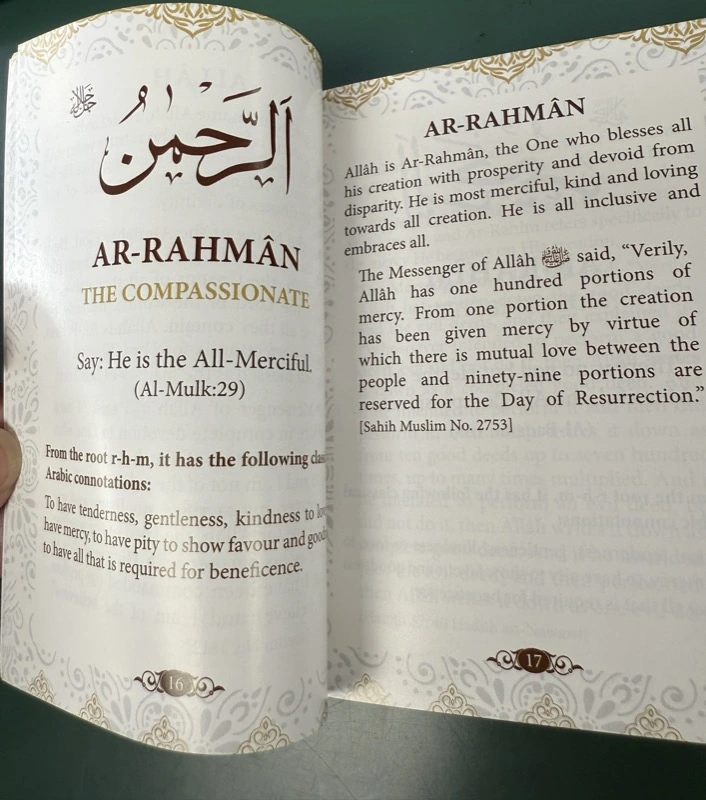 جل جلاله
الرَّحْمٰنُ
AR-RAHMÂN
THE COMPASSIONATE
Say: He is the All-Merciful.
(Al-Mulk:29)
From the root r-h-m, it has the following
Arabic connotations:
To have tenderness, gentleness, kindness to
have mercy, to have pity to show favour and
to have all that is required for beneficence.
16
AR-RAHMÂN
Allâh is Ar-Rahmân, the One who blesses all
his creation with prosperity and devoid from
disparity. He is most merciful, kind and loving
towards all creation. He is all inclusive and
embraces all.
The Messenger of Allâh ﷺ said, “Verily,
Allâh has one hundred portions of
mercy. From one portion the creation
has been given mercy by virtue of
which there is mutual love between the
people and ninety-nine portions are
reserved for the Day of Resurrection.”
[Sahih Muslim No. 2753]
17